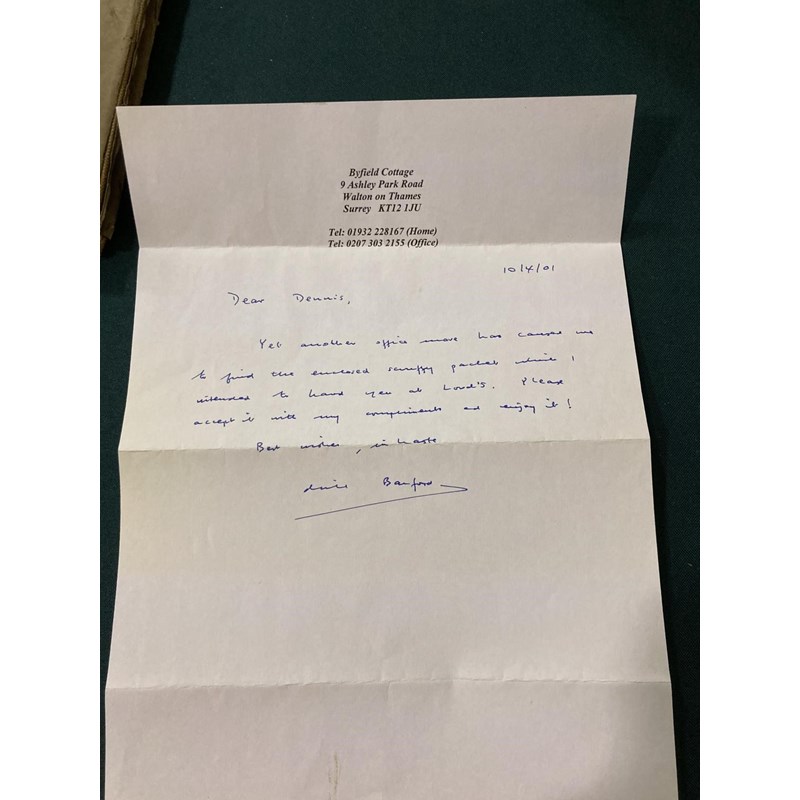 Byfield Cottage
9 Ashley Park Road
Walton on Thames
Surrey KT12 1JU
Tel: 01932 228167 (Home)
Tel: 0207 303 2155 (Office)
10/4/01
Dear Dennis,
Yet another office move has caused me
to find the enclosed scruffy packet which I
intended to hand you at Lord's. Please
accept it with my compliments and enjoy it!
Best wishes, in haste
Banford